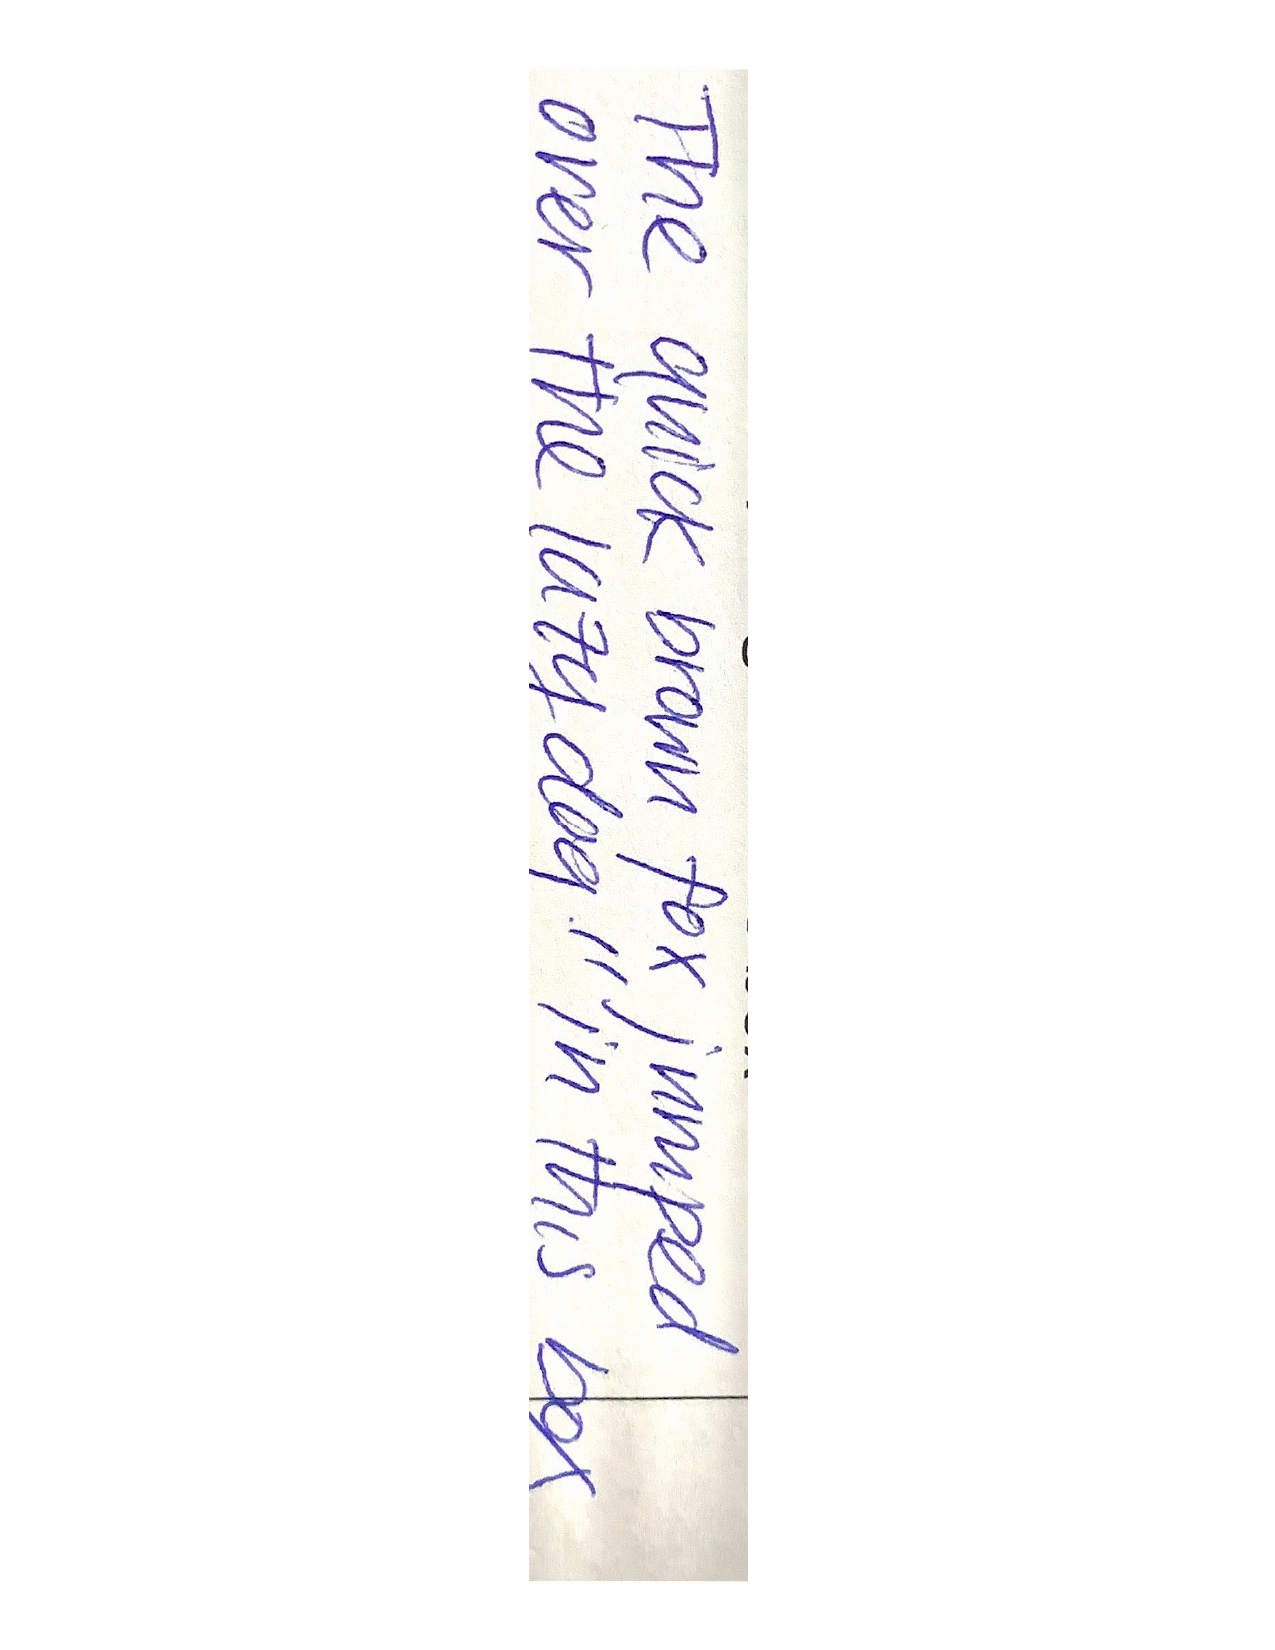 The quick brown fox jumped
over the lazy dog." in this box